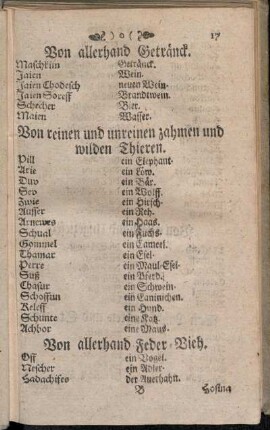 ) o ( 17
Von allerhand Getränck.
Maschkim Getränck.
Jaien Wein.
Jaien Chodesch neuen Wein.
Jaien Soreff Brandtwein.
Schecher Bier.
Maien Wasser.
Von reinen und unreinen zahmen und
wilden Thieren.
Pill ein Elephant.
Arie ein Löw.
Duw ein Bär.
Seo ein Wolff.
Zwie ein Hirsch.
Ausser ein Reh.
Arnewes ein Haas.
Schual ein Fuchs.
Gommel ein Cameel.
Thamar ein Esel.
Perre ein Maul-Esel.
Suß ein Pferd.
Chasur ein Schwein.
Schoffun ein Caninichen.
Keleff ein Hund.
Schunre eine Katz.
Achbor eine Maus.
Von allerhand Feder-Vieh.
Off ein Vogel.
Nescher ein Adler.
Hadachifes der Auerhahn.
B Hosina